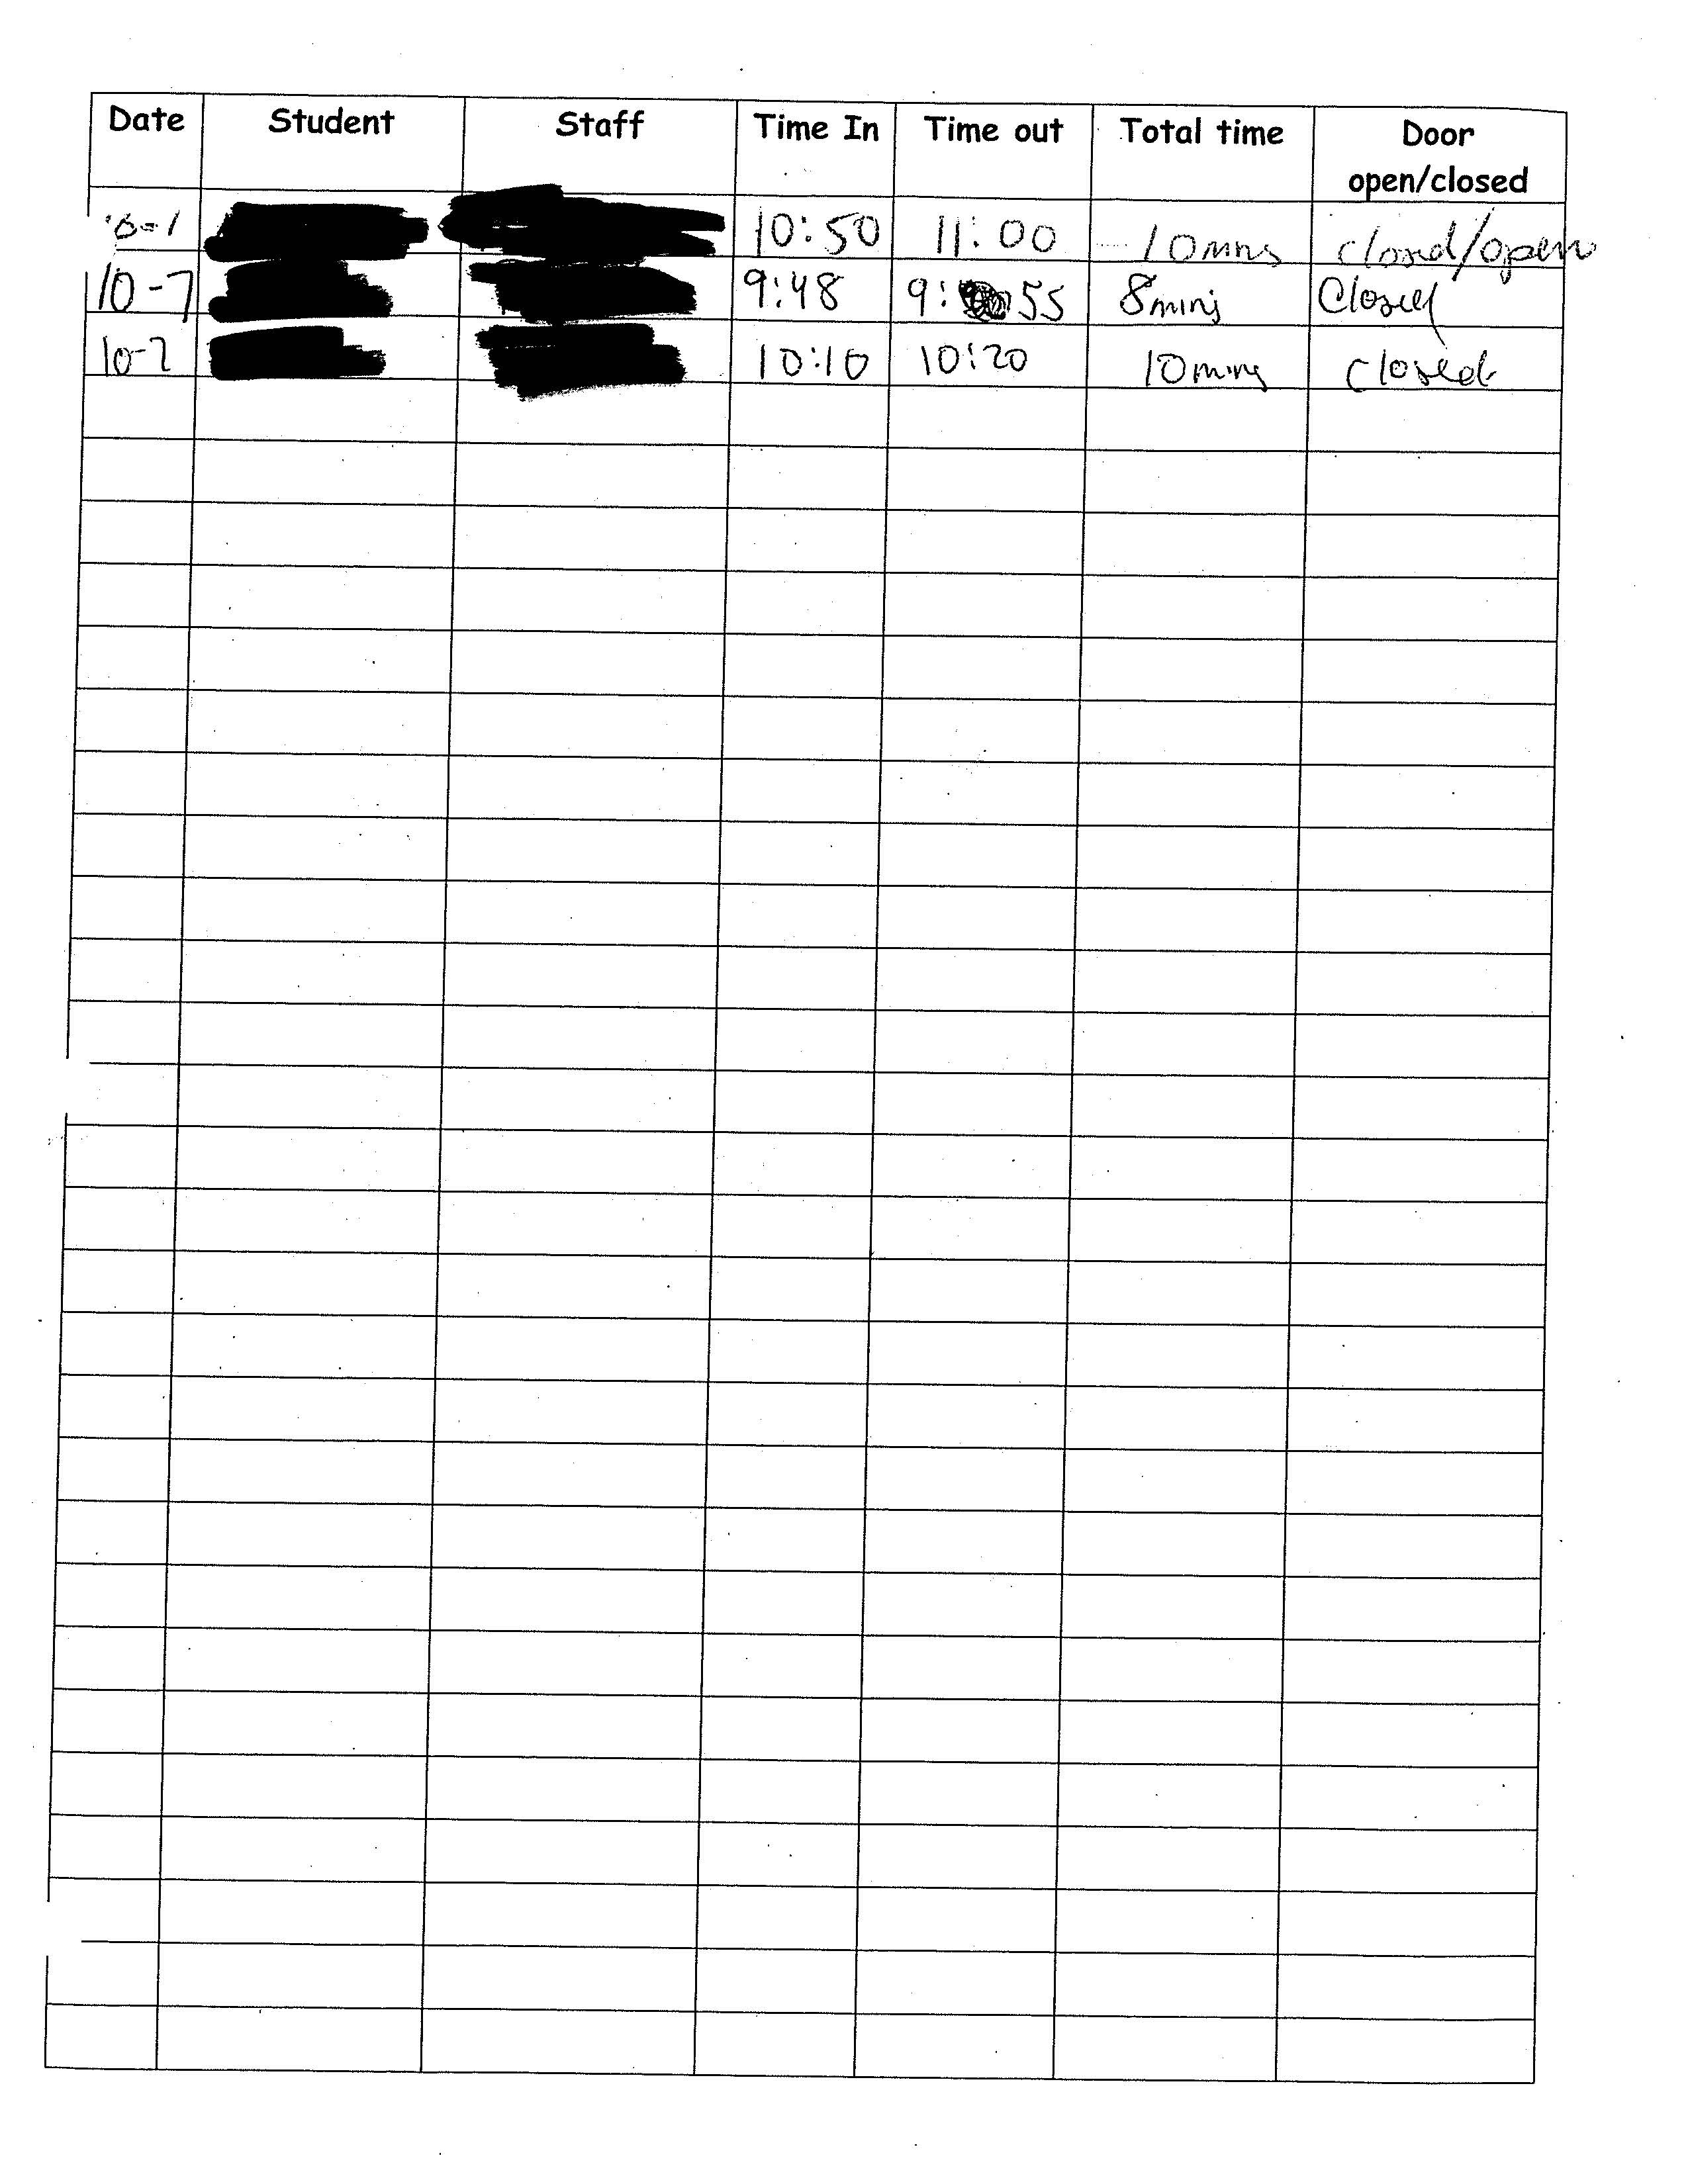 Date Student Staff Time In Time out Total time Door open/closed
10:50 11:00 10 mins closed/open
10-7 9:48 9: 55 8 mins Closed
10-7 10:10 10:20 10 mins closed